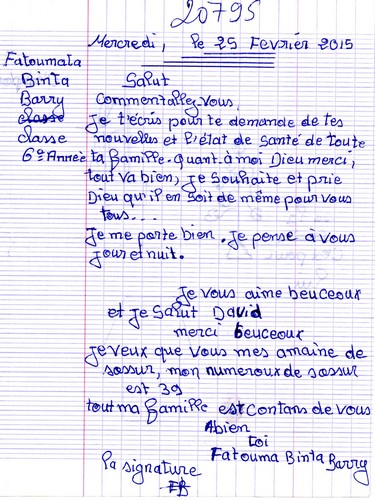 20795
Mercredi, le 25 Fevrier 2015
Fatoumata
Binta
Barry
classe
classe
6e Année
Salut
Commentallez-vous.
Je t'écris pour te demande de tes
nouvelles et l'état de santé de toute
ta famille. quant à moi Dieu merci,
tout va bien, je souhaite et prie
Dieu qu'il en soit de même pour vous
tous...
Je me porte bien. Je pense à vous
jour et nuit.
Je vous aime beuceoux
et je salut David
merci beuceoux
Je veux que vous mes amaine de
sossur, mon numeroux de sossur
est 39
tout ma famille est contans de vous
Abien
toi
Fatouma Binta Barry
la signature
FB